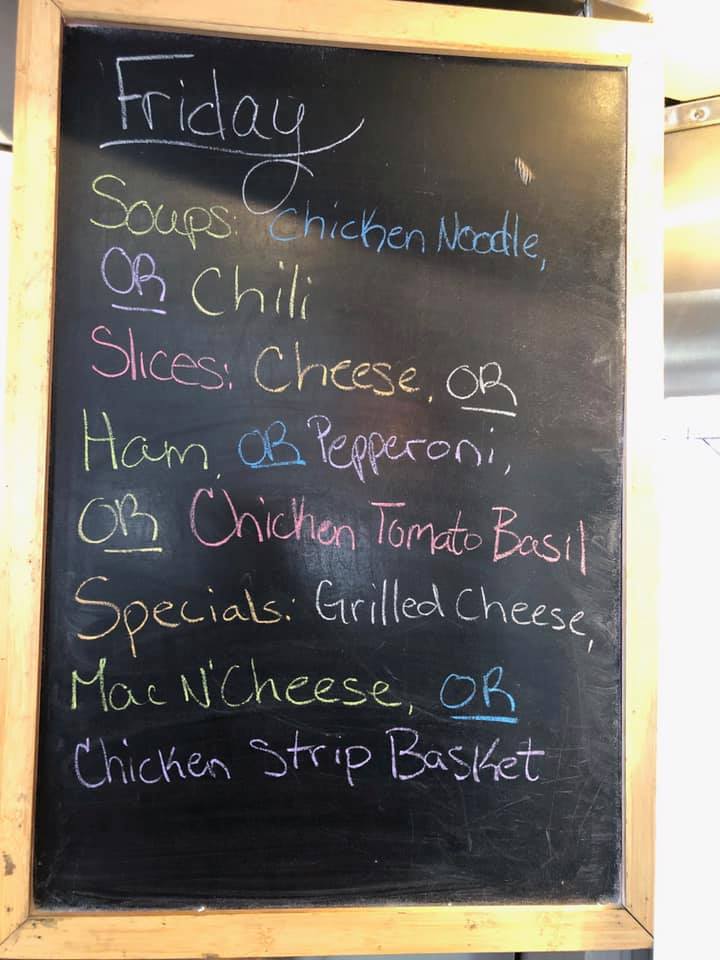 Friday
Soups: Chicken Noodle,
OR Chili
Slices: Cheese, OR
Ham, OR Pepperoni,
OR Chicken Tomato Basil
Specials: Grilled Cheese,
Mac N' Cheese, OR
Chicken Strip Basket